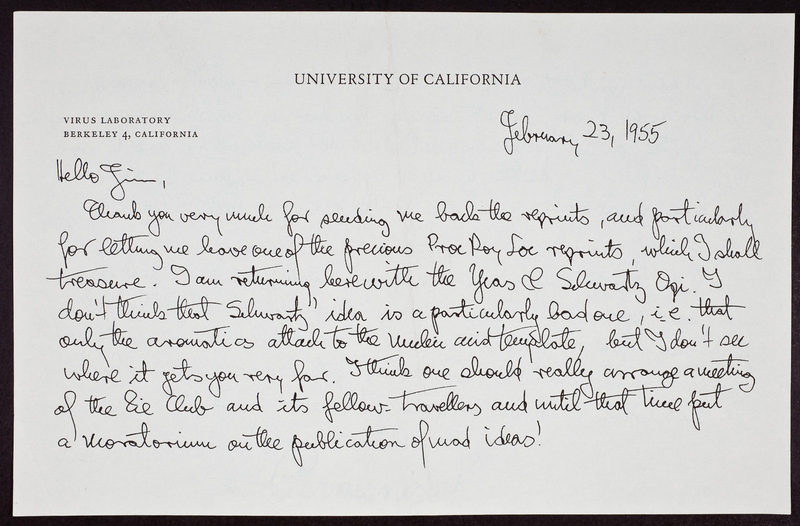 UNIVERSITY OF CALIFORNIA
VIRUS LABORATORY
BERKELEY 4, CALIFORNIA
February 23, 1955
Hello Jim,
Thank you very much for sending me back the reprints, and particularly
for letting me have one of the precious Proc Roy Soc reprints, which I shall
treasure. I am returning herewith the Ycas & Schwartz Opi. I
don't think that Schwartz' idea is a particularly bad one, i.e. that
only the aromatics attach to the nucleic acid template, but I don't see
where it gets you very far. I think one should really arrange a meeting
of the Tie Club and its fellow-travellers and until that time put
a moratorium on the publication of mad ideas!